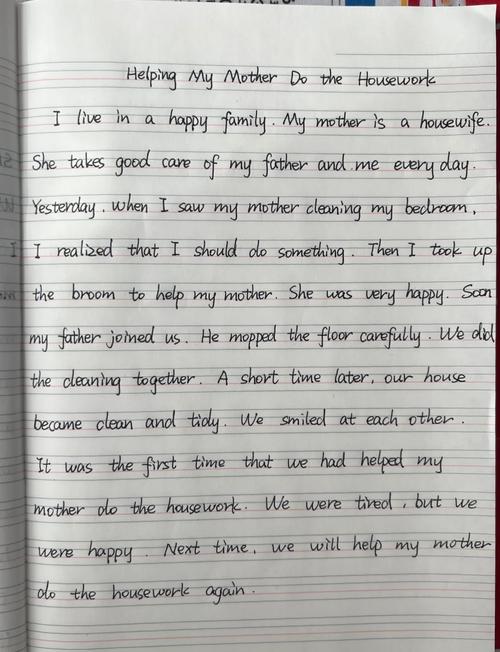 Helping My Mother Do the Housework
I live in a happy family. My mother is a housewife.
She takes good care of my father and me every day.
Yesterday, when I saw my mother cleaning my bedroom,
I realized that I should do something. Then I took up
the broom to help my mother. She was very happy. Soon
my father joined us. He mopped the floor carefully. We did
the cleaning together. A short time later, our house
became clean and tidy. We smiled at each other.
It was the first time that we had helped my
mother do the housework. We were tired, but we
were happy. Next time, we will help my mother
do the housework again.